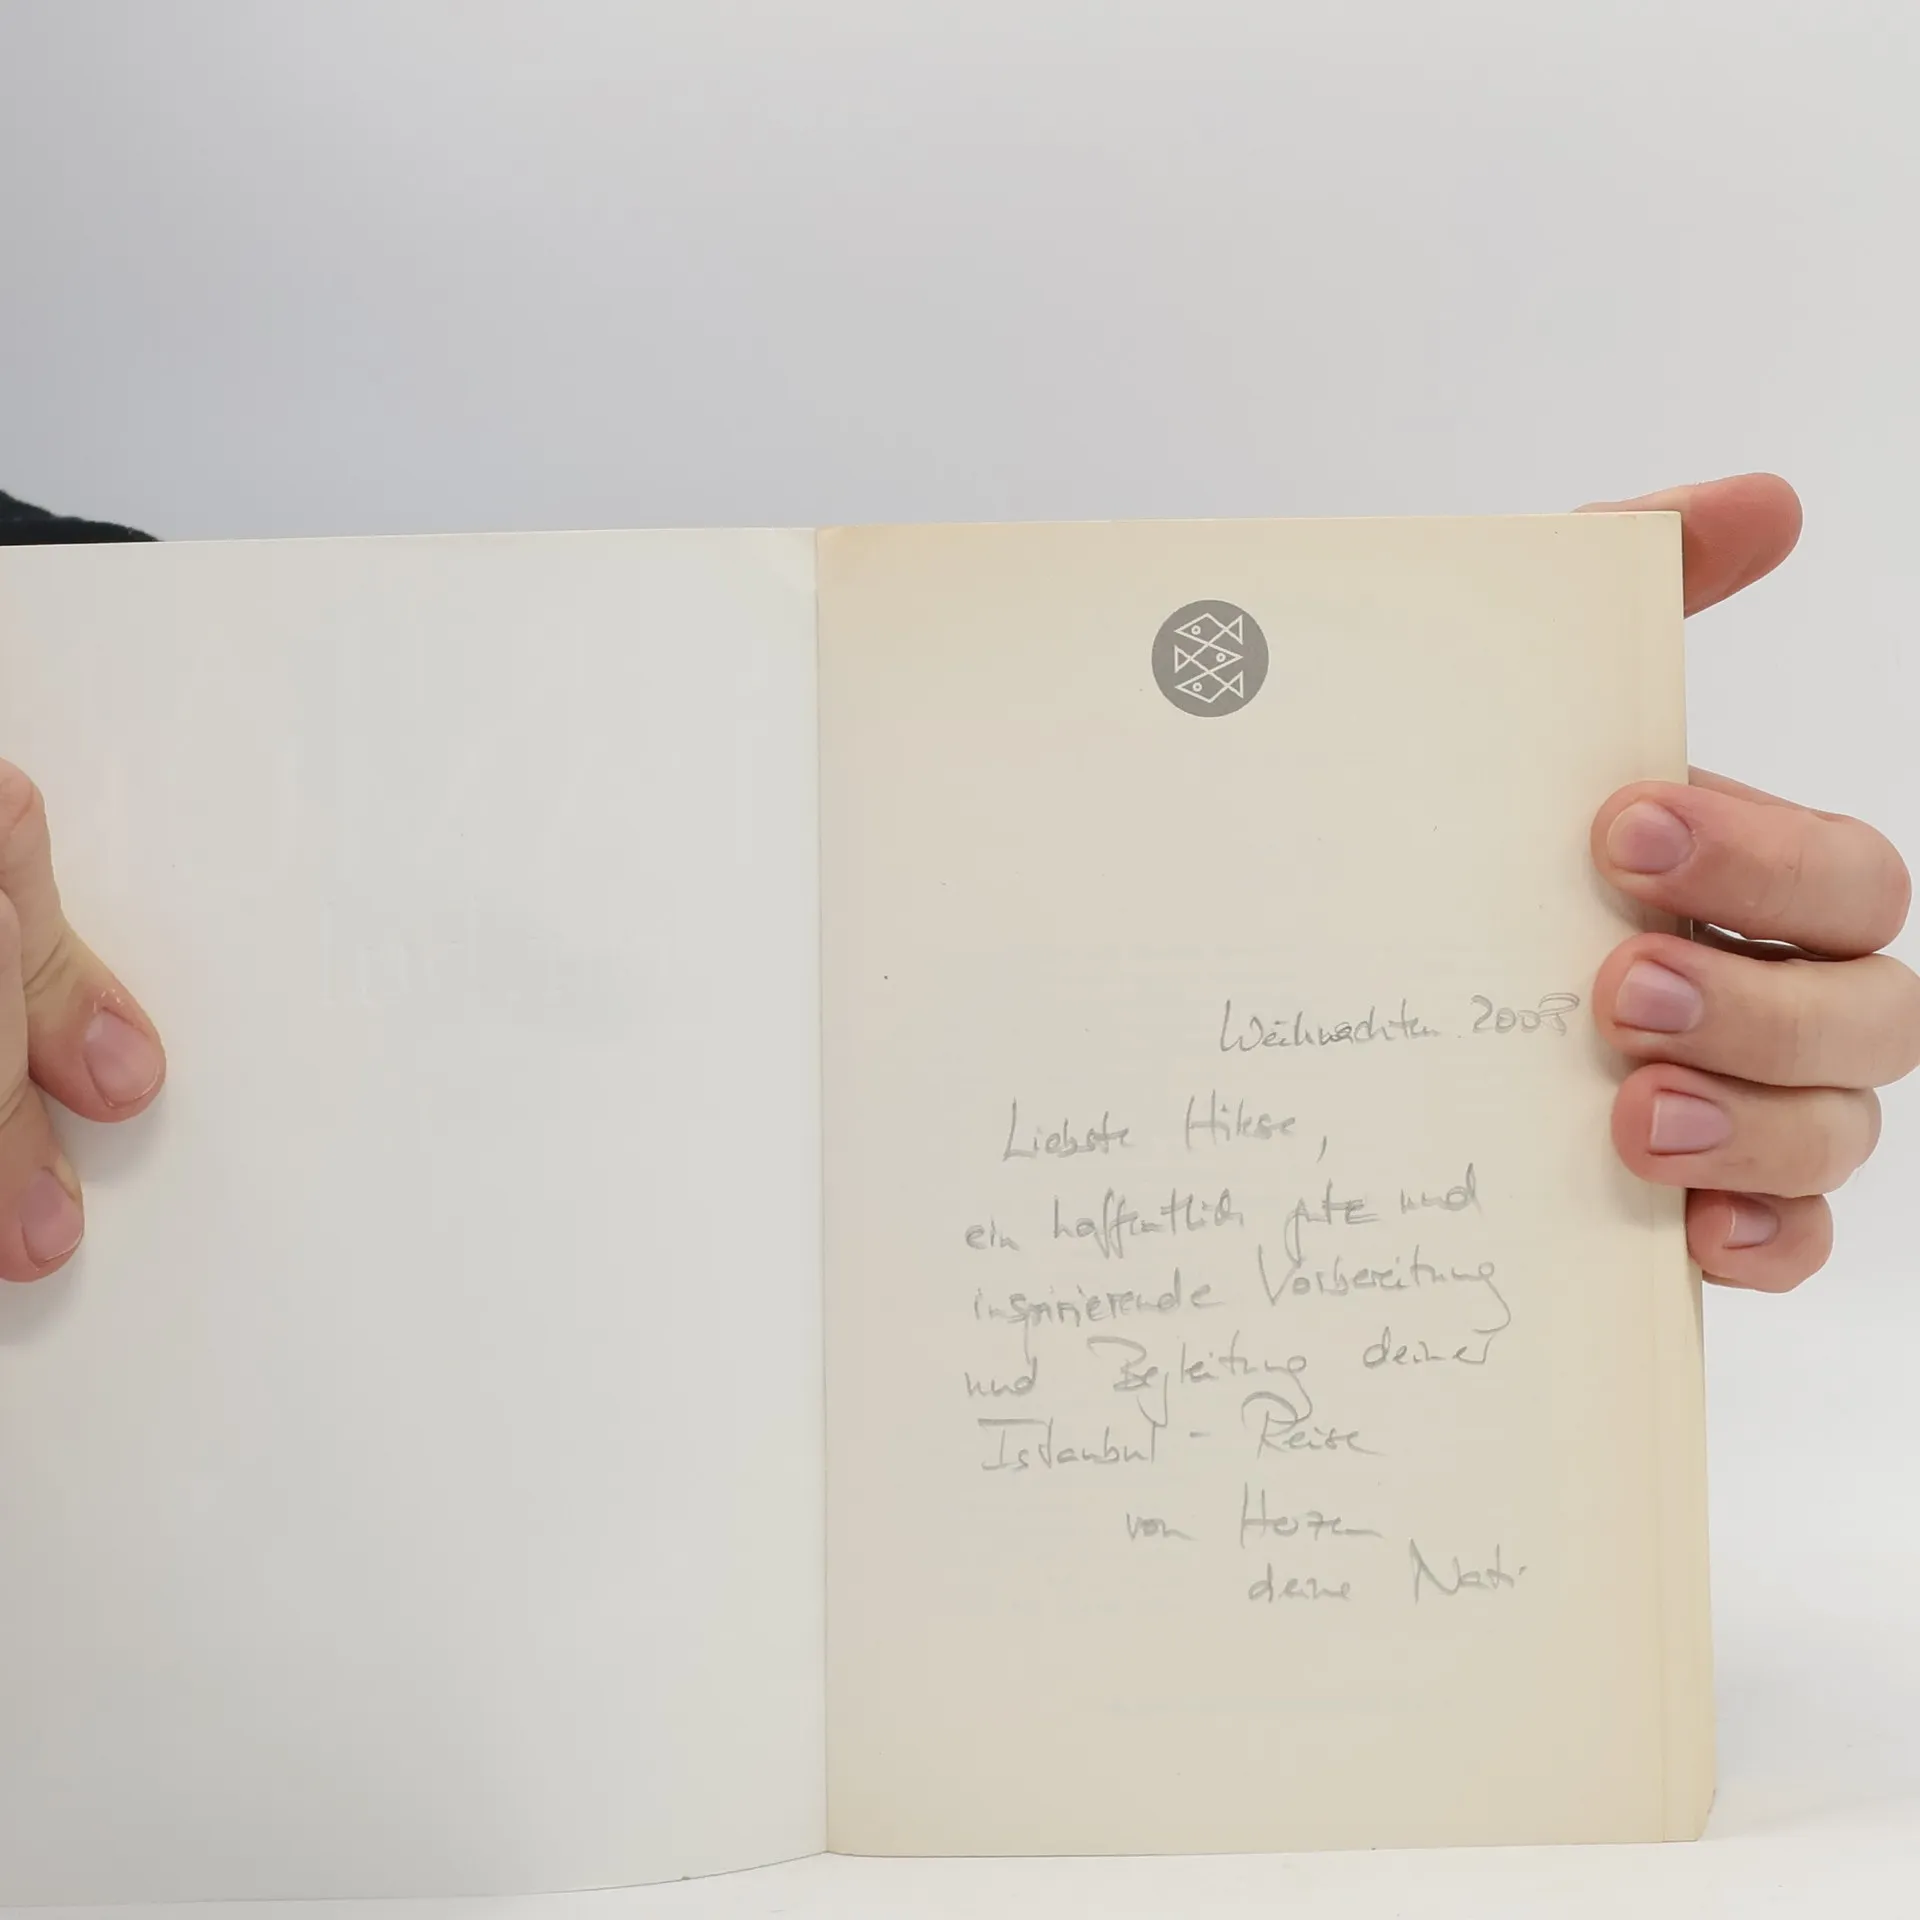 Weihnachten 2008
Liebste
ein hoffentlich gute und
inspirierende Vorbereitung
und Begleitung deiner
Istanbul - Reise
von Herzen
deine Nati